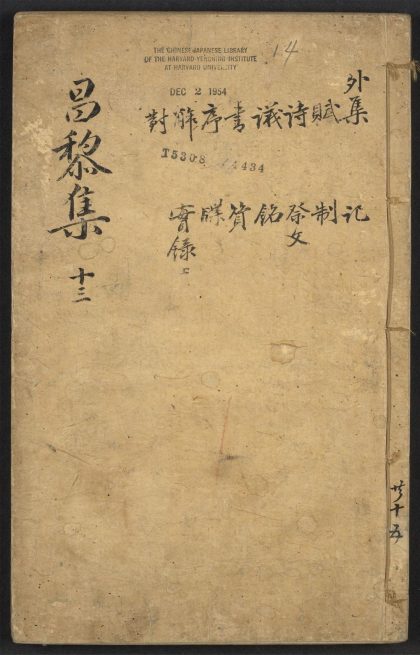 THE CHINESE-JAPANESE LIBRARY
OF THE HARVARD-YENCHING INSTITUTE
AT HARVARD UNIVERSITY
DEC 2 1954
14
T5308 / 4434
外集
賦詩議書序解對
記制祭文銘賛牒實錄
昌黎集
十三
共十五